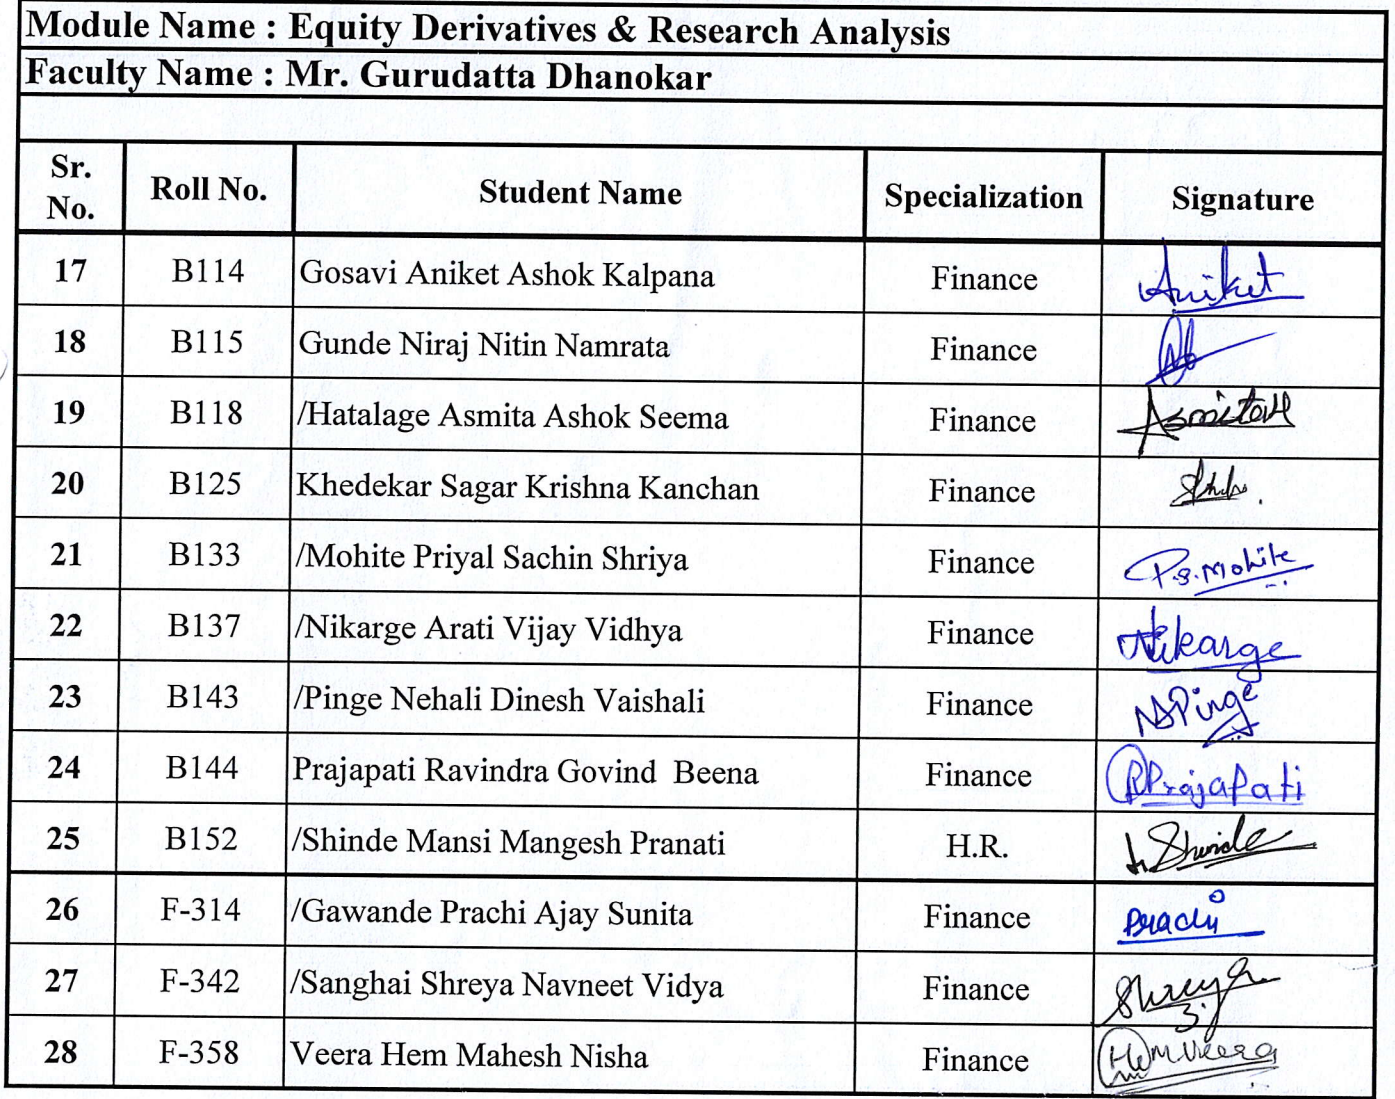 Module Name : Equity Derivatives & Research Analysis
Faculty Name : Mr. Gurudatta Dhanokar
Sr. No. Roll No. Student Name Specialization Signature
17 B114 Gosavi Aniket Ashok Kalpana Finance Aniket
18 B115 Gunde Niraj Nitin Namrata Finance
19 B118 /Hatalage Asmita Ashok Seema Finance AsmitaH
20 B125 Khedekar Sagar Krishna Kanchan Finance
21 B133 /Mohite Priyal Sachin Shriya Finance P.S.Mohite
22 B137 /Nikarge Arati Vijay Vidhya Finance Nikarge
23 B143 /Pinge Nehali Dinesh Vaishali Finance Pinge
24 B144 Prajapati Ravindra Govind Beena Finance RPrajapati
25 B152 /Shinde Mansi Mangesh Pranati H.R. Shinde
26 F-314 /Gawande Prachi Ajay Sunita Finance Prachi
27 F-342 /Sanghai Shreya Navneet Vidya Finance Shreya
28 F-358 Veera Hem Mahesh Nisha Finance HemMVeera